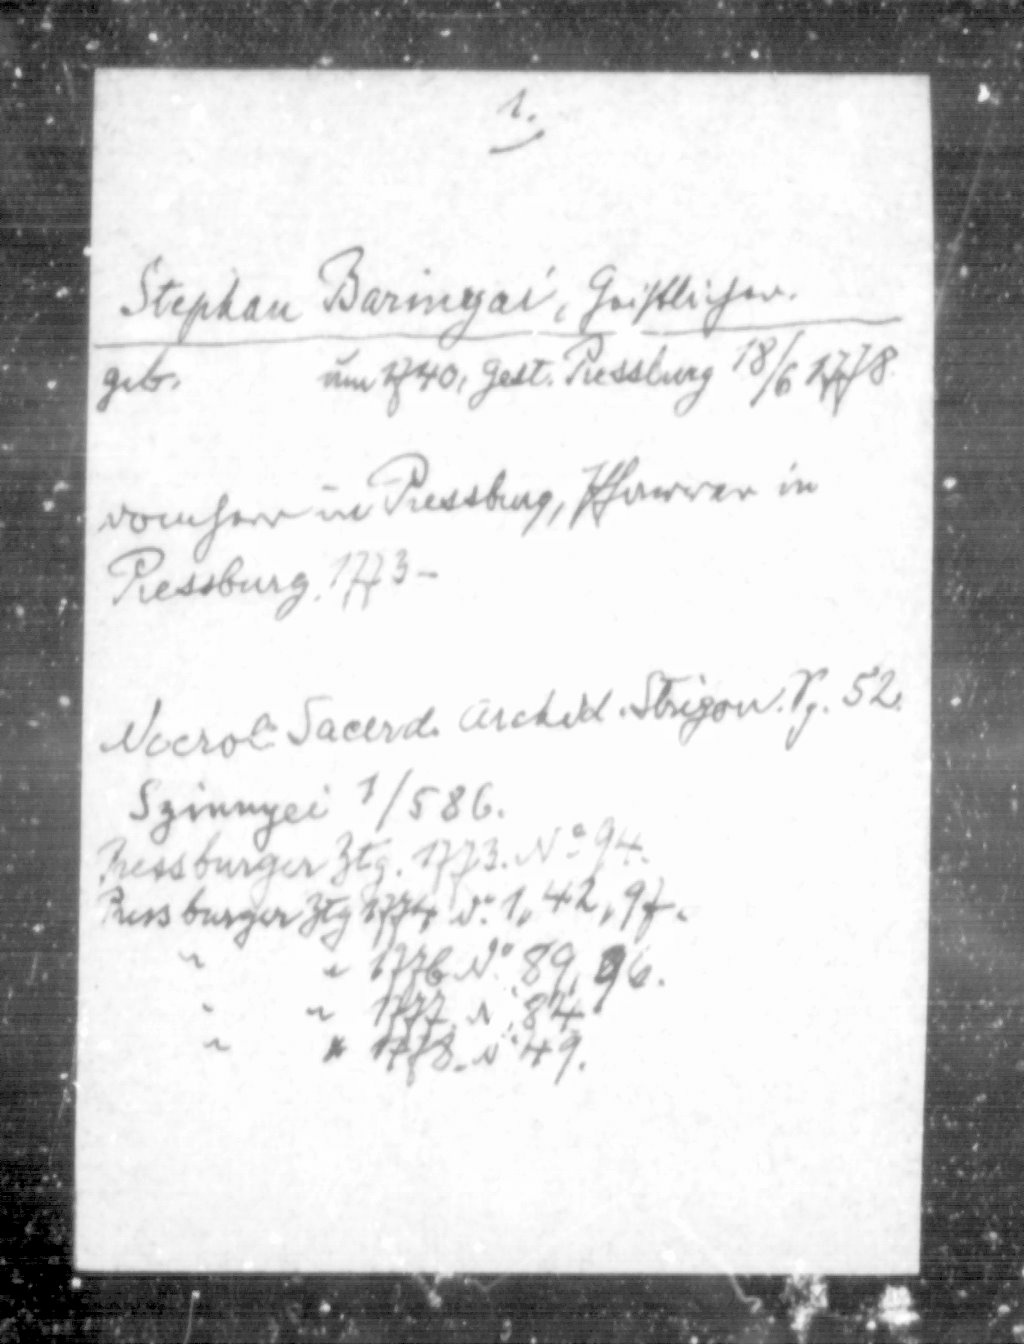 1.
Stephan Barinyai, Geistlicher.
geb. um 1740, gest. Pressburg 18/6 1778
Domherr in Pressburg, Pfarrer in
Pressburg. 1773 –
Necrol. Sacerd. Archid. Strigon. Pg. 52.
Szinnyei 1/586.
Pressburger Ztg. 1773. No 94.
Pressburger Ztg 1774 No 1, 42, 97.
" " 1776 No 89, 96.
" " 1777. N 84
" " 1778. No 49.